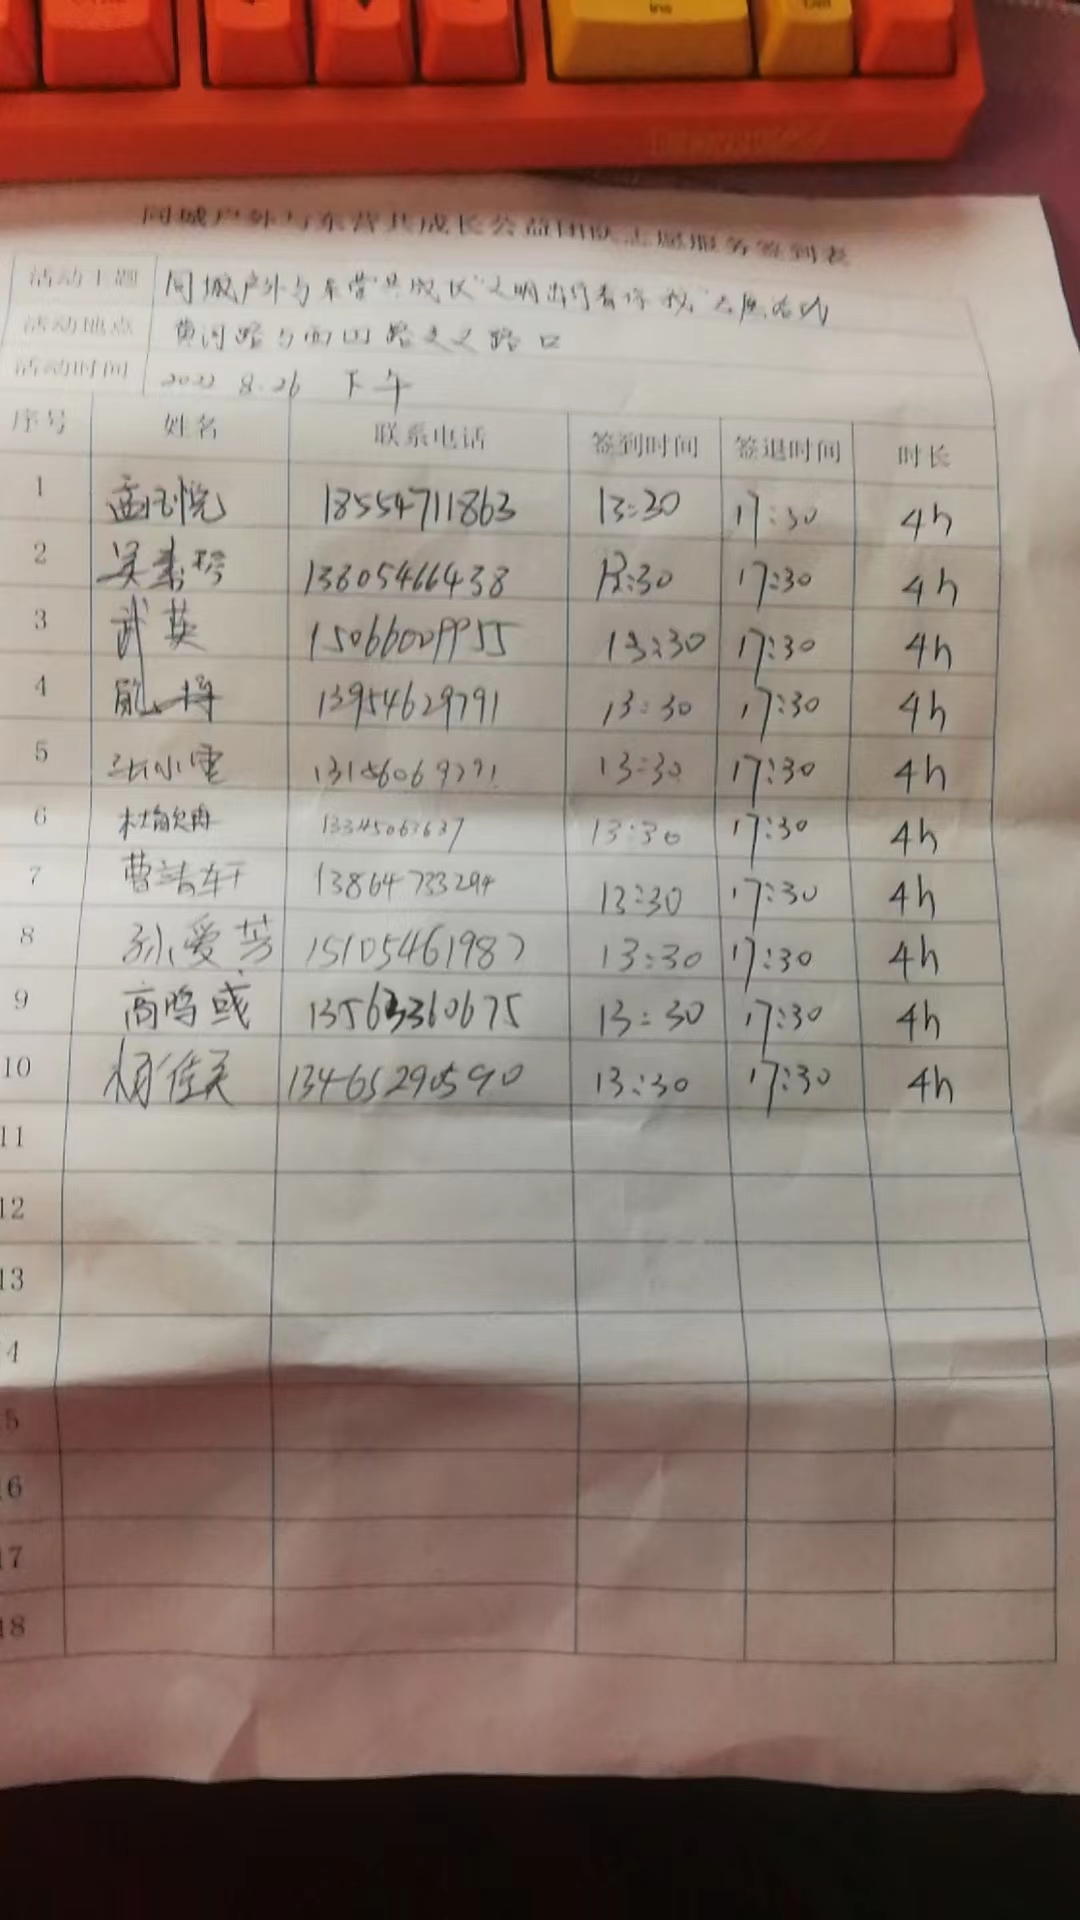 Ins
同城户外与东营共成长公益团队志愿服务签到表
活动主题 同城户外与东营共成长"文明出行看你我"志愿活动
活动地点 黄河路与西四路交叉路口
活动时间 2022 8.26 下午
序号 姓名 联系电话 签到时间 签退时间 时长
1 孟 悦 18554711863 13:30 17:30 4h
2 吴 珍 13605466438 13:30 17:30 4h
3 武英 15066009955 13:30 17:30 4h
4 13954629791 13:30 17:30 4h
5 张小雪 13:30 17:30 4h
6 杜 13345063637 13:30 17:30 4h
7 曹洁轩 13864733294 13:30 17:30 4h
8 孙爱芳 15105461987 13:30 17:30 4h
9 高鸣彧 13563360675 13:30 17:30 4h
10 杨佳美 13465290590 13:30 17:30 4h
11
12
13
4
5
16
17
18